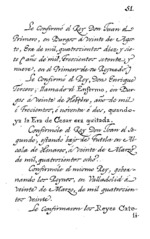 51.
Le Confirmó el Rey Don Juan el
Primero, en Burgos á veinte de Agos-
to, Era de mil, quatrocientos diez, y sie-
te, y año de mil, trescientos setenta, y
nueve, en el Primero de su Reynado.
Le Confirmó el Rey, Don Enrique
Tercero, llamado el Enfermo, en Bur-
gos á veinte de Febrero, año de mil
trescientos, y noventa y dos, quando
ya la Era de Cesar era quitada.
Confirmóle el Rey Don Juan el Se-
gundo, estando bajo de Tutela en Al-
calá de Henares, á veinte de Marzo,
de mil, quatrocientos ocho.
Confirmóle el mismo Rey, gober-
nando los Reynos, en Valladolid á
veinte de Marzo, de mil, quatrocien-
tos veinte.
Le Confirmaron los Reyes Cató-
li-